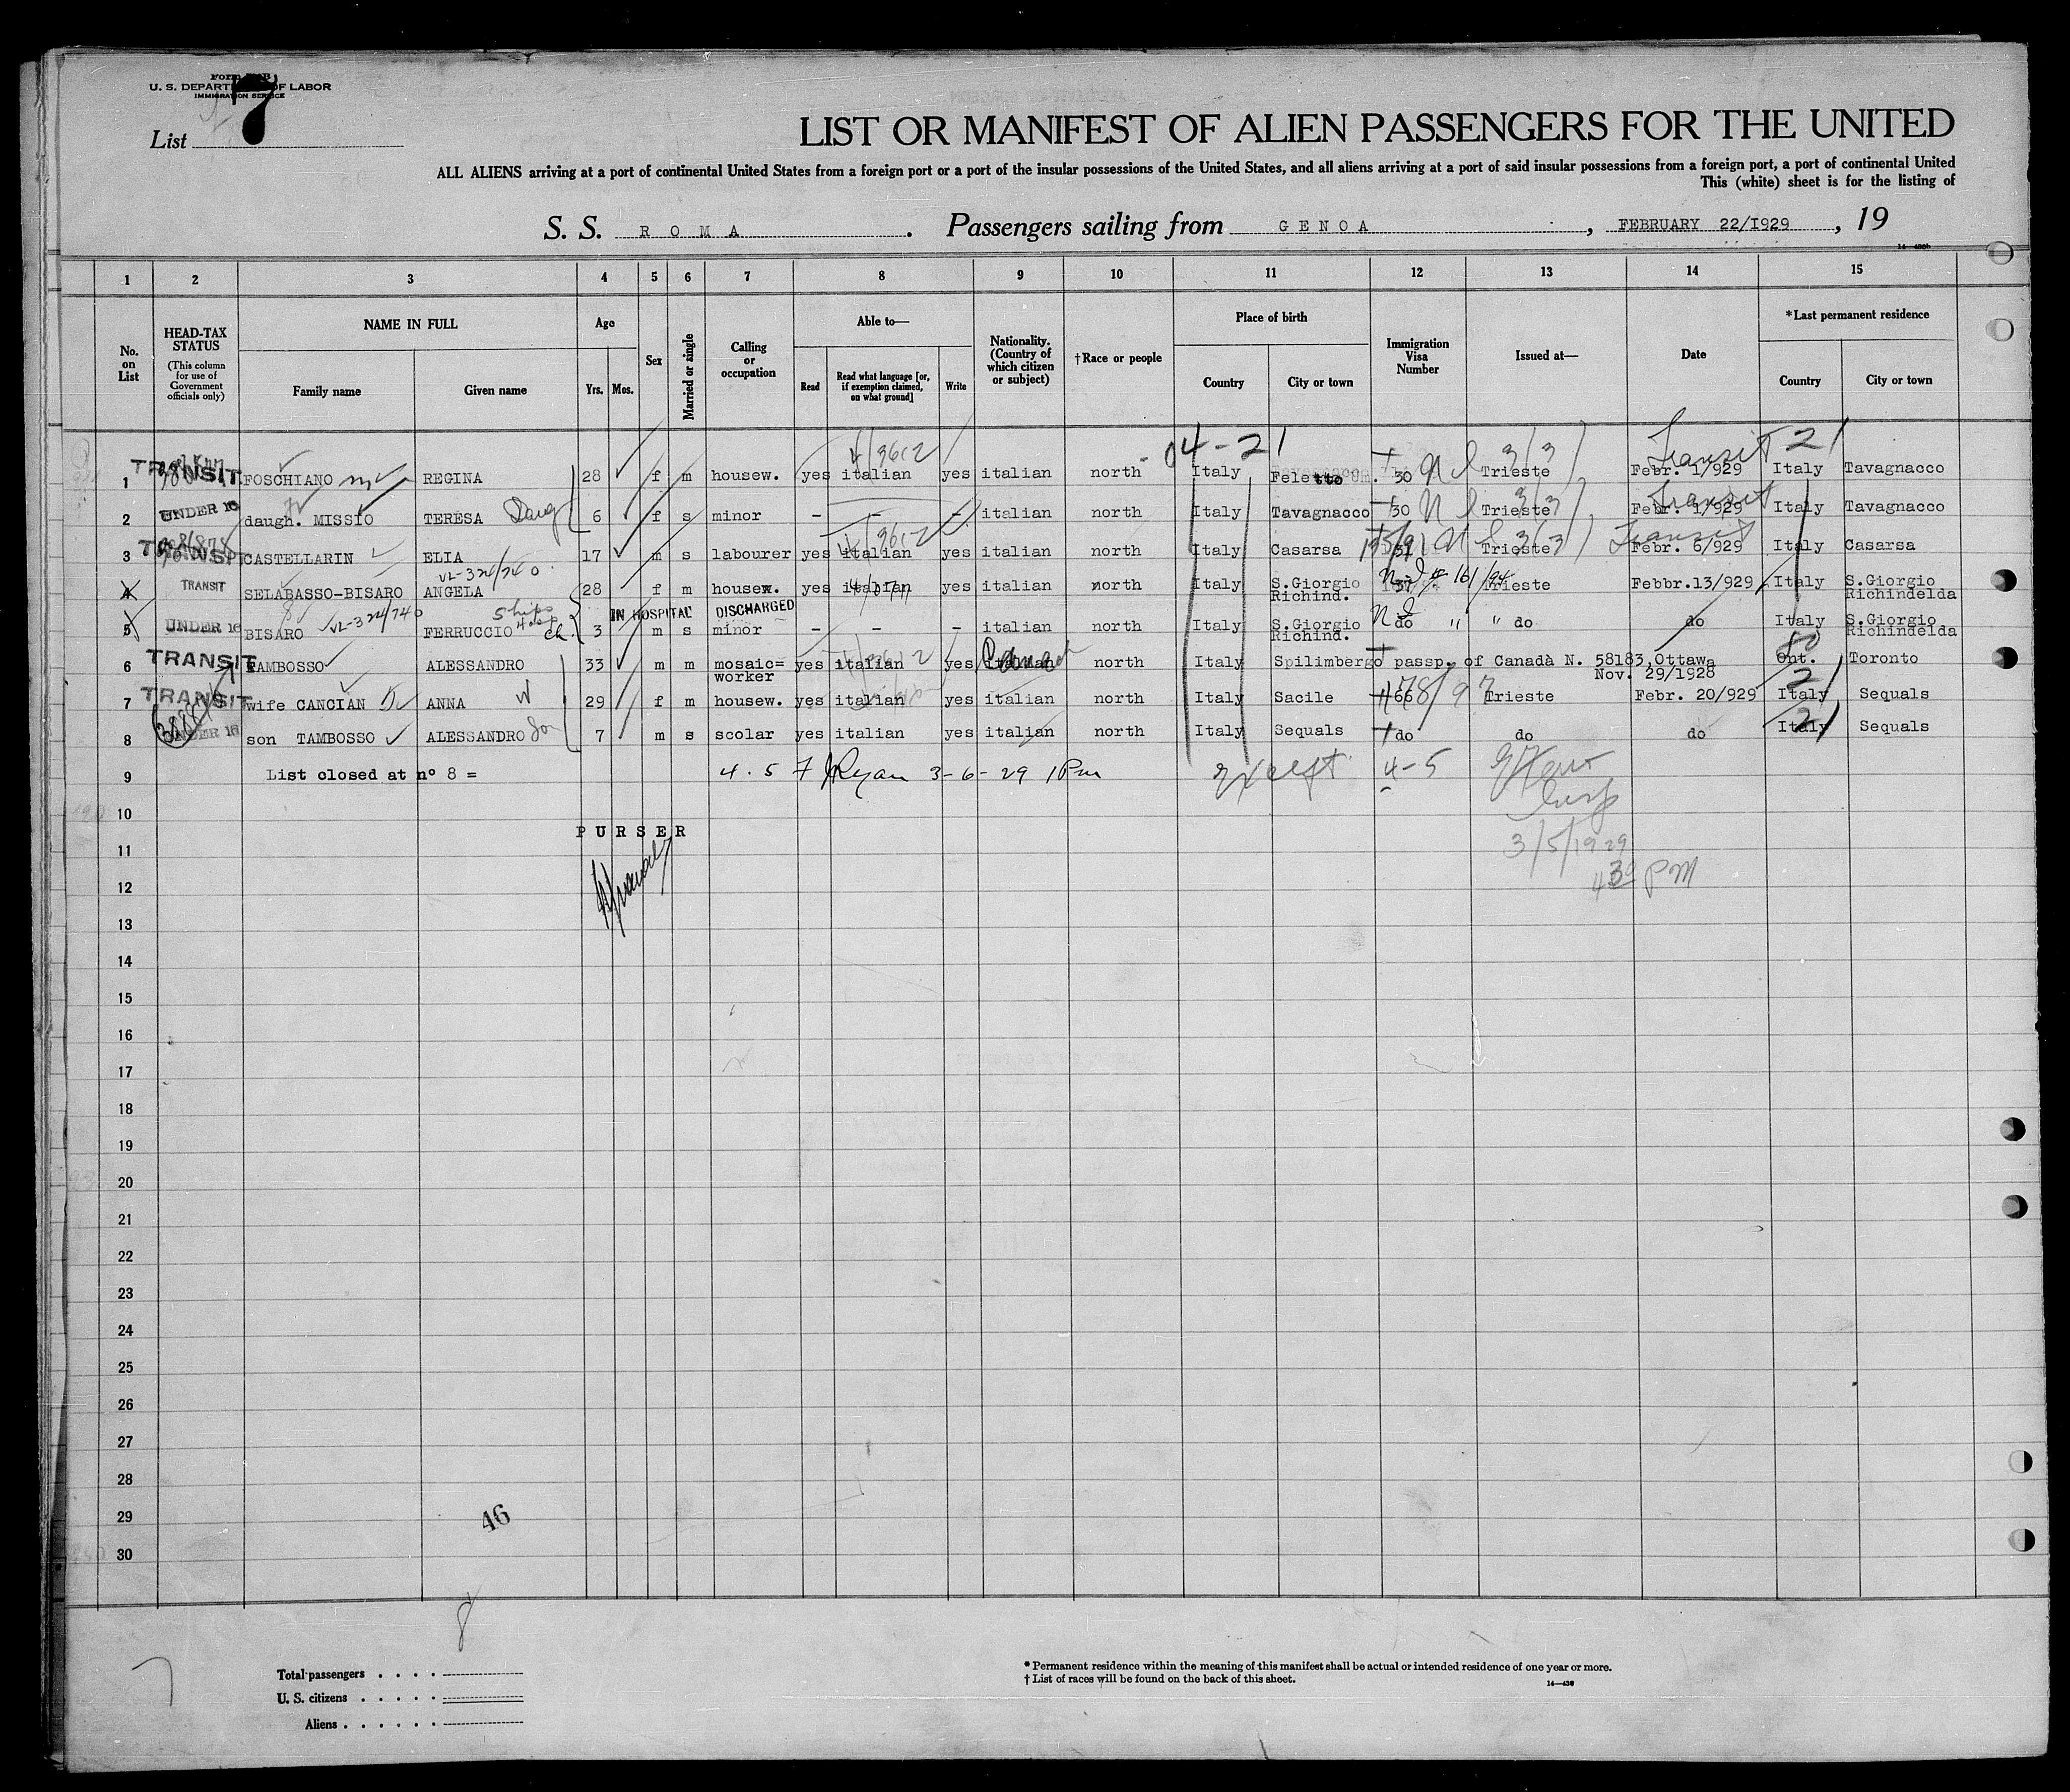 Form
U. S. DEPARTMENT OF LABOR
IMMIGRATION SERVICE
List 7
LIST OR MANIFEST OF ALIEN PASSENGERS FOR THE UNITED
ALL ALIENS arriving at a port of continental United States from a foreign port or a port of the insular possessions of the United States, and all aliens arriving at a port of said insular possessions from a foreign port, a port of continental United
This (white) sheet is for the listing of
S. S. ROMA. Passengers sailing from GENOA, FEBRUARY 22/1929, 19
1 2 3 4 5 6 7 8 9 10 11 12 13 14 15
No. on List HEAD-TAX STATUS (This column for use of Government officials only) NAME IN FULL Family name Given name Age Yrs. Mos. Sex Married or single Calling or occupation Able to— Read Read what language [or, if exemption claimed, on what ground] Write Nationality. (Country of which citizen or subject) †Race or people Place of birth Country City or town Immigration Visa Number Issued at— Date *Last permanent residence Country City or town
04-21 Transit 21
1 TRANSIT FOSCHIANO REGINA 28 f m housew. yes italian yes italian north Italy Feletto 30 Trieste Febr. 1/929 Italy Tavagnacco
2 UNDER 16 daugh. MISSIO TERESA Daug 6 f s minor - - - italian north Italy Tavagnacco 30 Trieste Febr. 1/929 Italy Tavagnacco
3 TRANSIT CASTELLARIN ELIA 17 m s labourer yes italian yes italian north Italy Casarsa Trieste Febr. 6/929 Italy Casarsa
4 TRANSIT SELABASSO-BISARO ANGELA 28 f m housew. yes italian yes italian north Italy S.Giorgio Richind. Trieste Febbr.13/929 Italy S.Giorgio Richindelda
IN HOSPITAL DISCHARGED
5 UNDER 16 BISARO FERRUCCIO ch. 3 m s minor - - - italian north Italy S.Giorgio Richind. do " " do do Italy S.Giorgio Richindelda
6 TRANSIT TAMBOSSO ALESSANDRO 33 m m mosaic=worker yes italian yes italian north Italy Spilimbergo passp. of Canadà N. 58183,Ottawa Nov. 29/1928 Ont. Toronto
7 TRANSIT wife CANCIAN ANNA W 29 f m housew. yes italian yes italian north Italy Sacile 66 Trieste Febr. 20/929 Italy Sequals
8 UNDER 16 son TAMBOSSO ALESSANDRO Son 7 m s scolar yes italian yes italian north Italy Sequals do do do Italy Sequals
9 List closed at nº 8 = 4. 5 Ryan 3-6-29 1PM except 4-5
10
PURSER
11 3/5/1929
12 4 30 PM
13
14
15
16
17
18
19
20
21
22
23
24
25
26
27
28
29 46
30
8
7
Total passengers
U. S. citizens
Aliens
* Permanent residence within the meaning of this manifest shall be actual or intended residence of one year or more.
† List of races will be found on the back of this sheet.